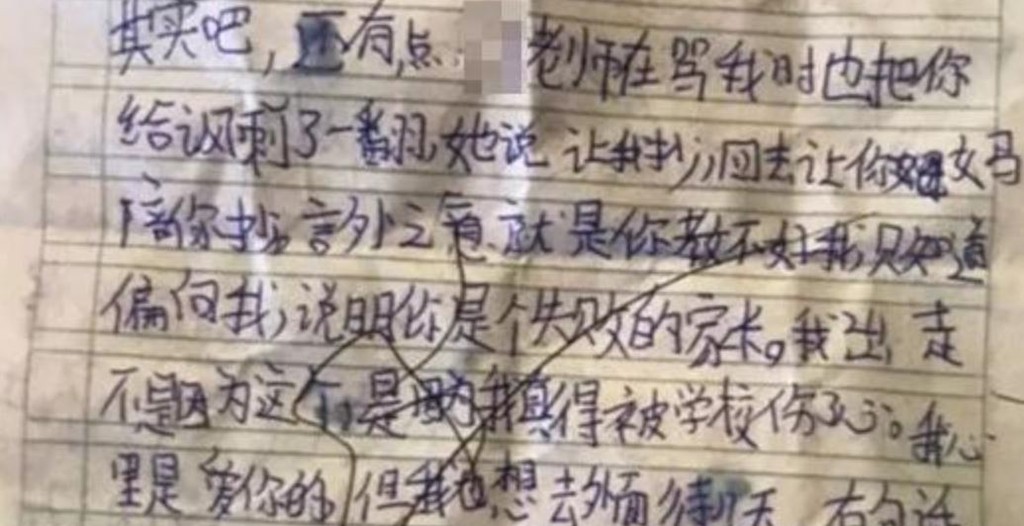 其实吧，还有点 老师在骂我时也把你
给讽刺了一翻，她说让我抄，回去让你妈
陪你抄，言外之意，就是你教不好我只知道
偏向我，说明你是个失败的家长。我出走
不是因为这个，是因为我真得被学校伤了心。我心
里是爱你的，但我也想去外面待几天，有句话